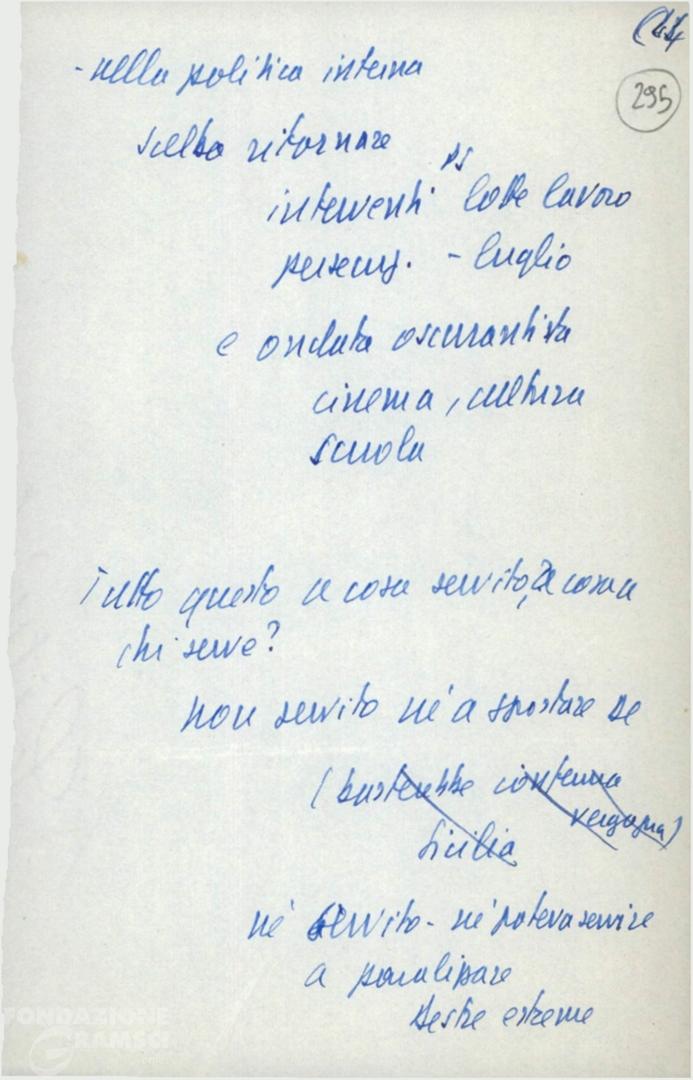 295
- nella politica interna
Scelba ritornare
interventi PS lotte lavoro
persecuz. - luglio
e ondata oscurantista
cinema, cultura
scuola
Tutto questo a cosa servito, a cosa e
chi serve?
non servito né a spostare DC
(basterebbe conferma
vergogna)
Sicilia
né servito - né poteva servire
a paralizzare
destre estreme
FONDAZIONE
GRAMSCI